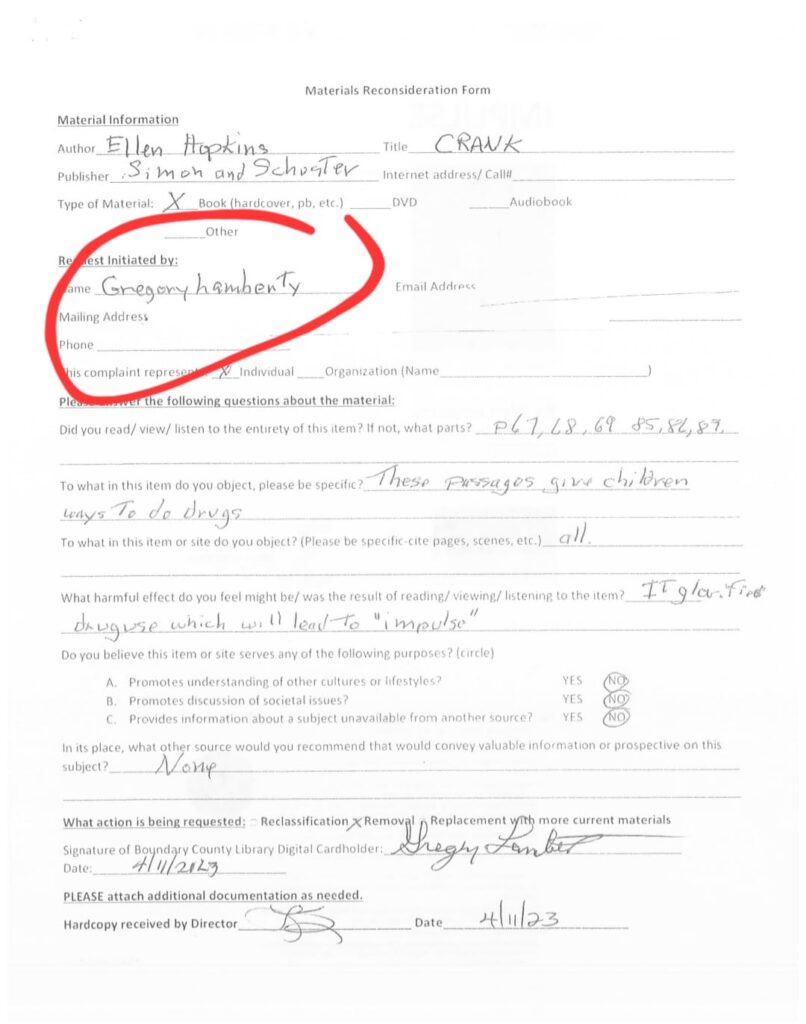 Materials Reconsideration Form
Material Information
Author Ellen Hopkins Title CRANK
Publisher Simon and Schuster Internet address/ Call#
Type of Material: X Book (hardcover, pb, etc.) DVD Audiobook
Other
Request Initiated by:
Name Gregory Lamberty Email Address
Mailing Address
Phone
This complaint represents: X Individual Organization (Name )
Please answer the following questions about the material:
Did you read/ view/ listen to the entirety of this item? If not, what parts? P67, 68, 69 85, 86, 89.
To what in this item do you object, please be specific? These passages give children
ways To do drugs
To what in this item or site do you object? (Please be specific-cite pages, scenes, etc.) all.
What harmful effect do you feel might be/ was the result of reading/ viewing/ listening to the item? IT glorifies
druguse which will lead to "impulse"
Do you believe this item or site serves any of the following purposes? (circle)
A. Promotes understanding of other cultures or lifestyles? YES NO
B. Promotes discussion of societal issues? YES NO
C. Provides information about a subject unavailable from another source? YES NO
In its place, what other source would you recommend that would convey valuable information or prospective on this
subject? None
What action is being requested: Reclassification X Removal Replacement with more current materials
Signature of Boundary County Library Digital Cardholder:
Date: 4/11/2023
PLEASE attach additional documentation as needed.
Hardcopy received by Director Date 4/11/23